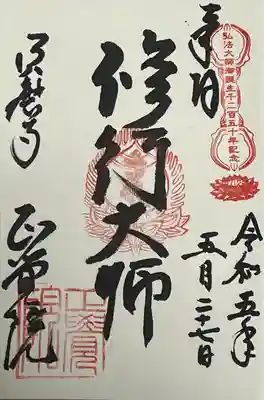 弘法大師御誕生千二百五十年記念
奉拝
令和五年
五月二十七日
修行大師
須磨寺
正覚院